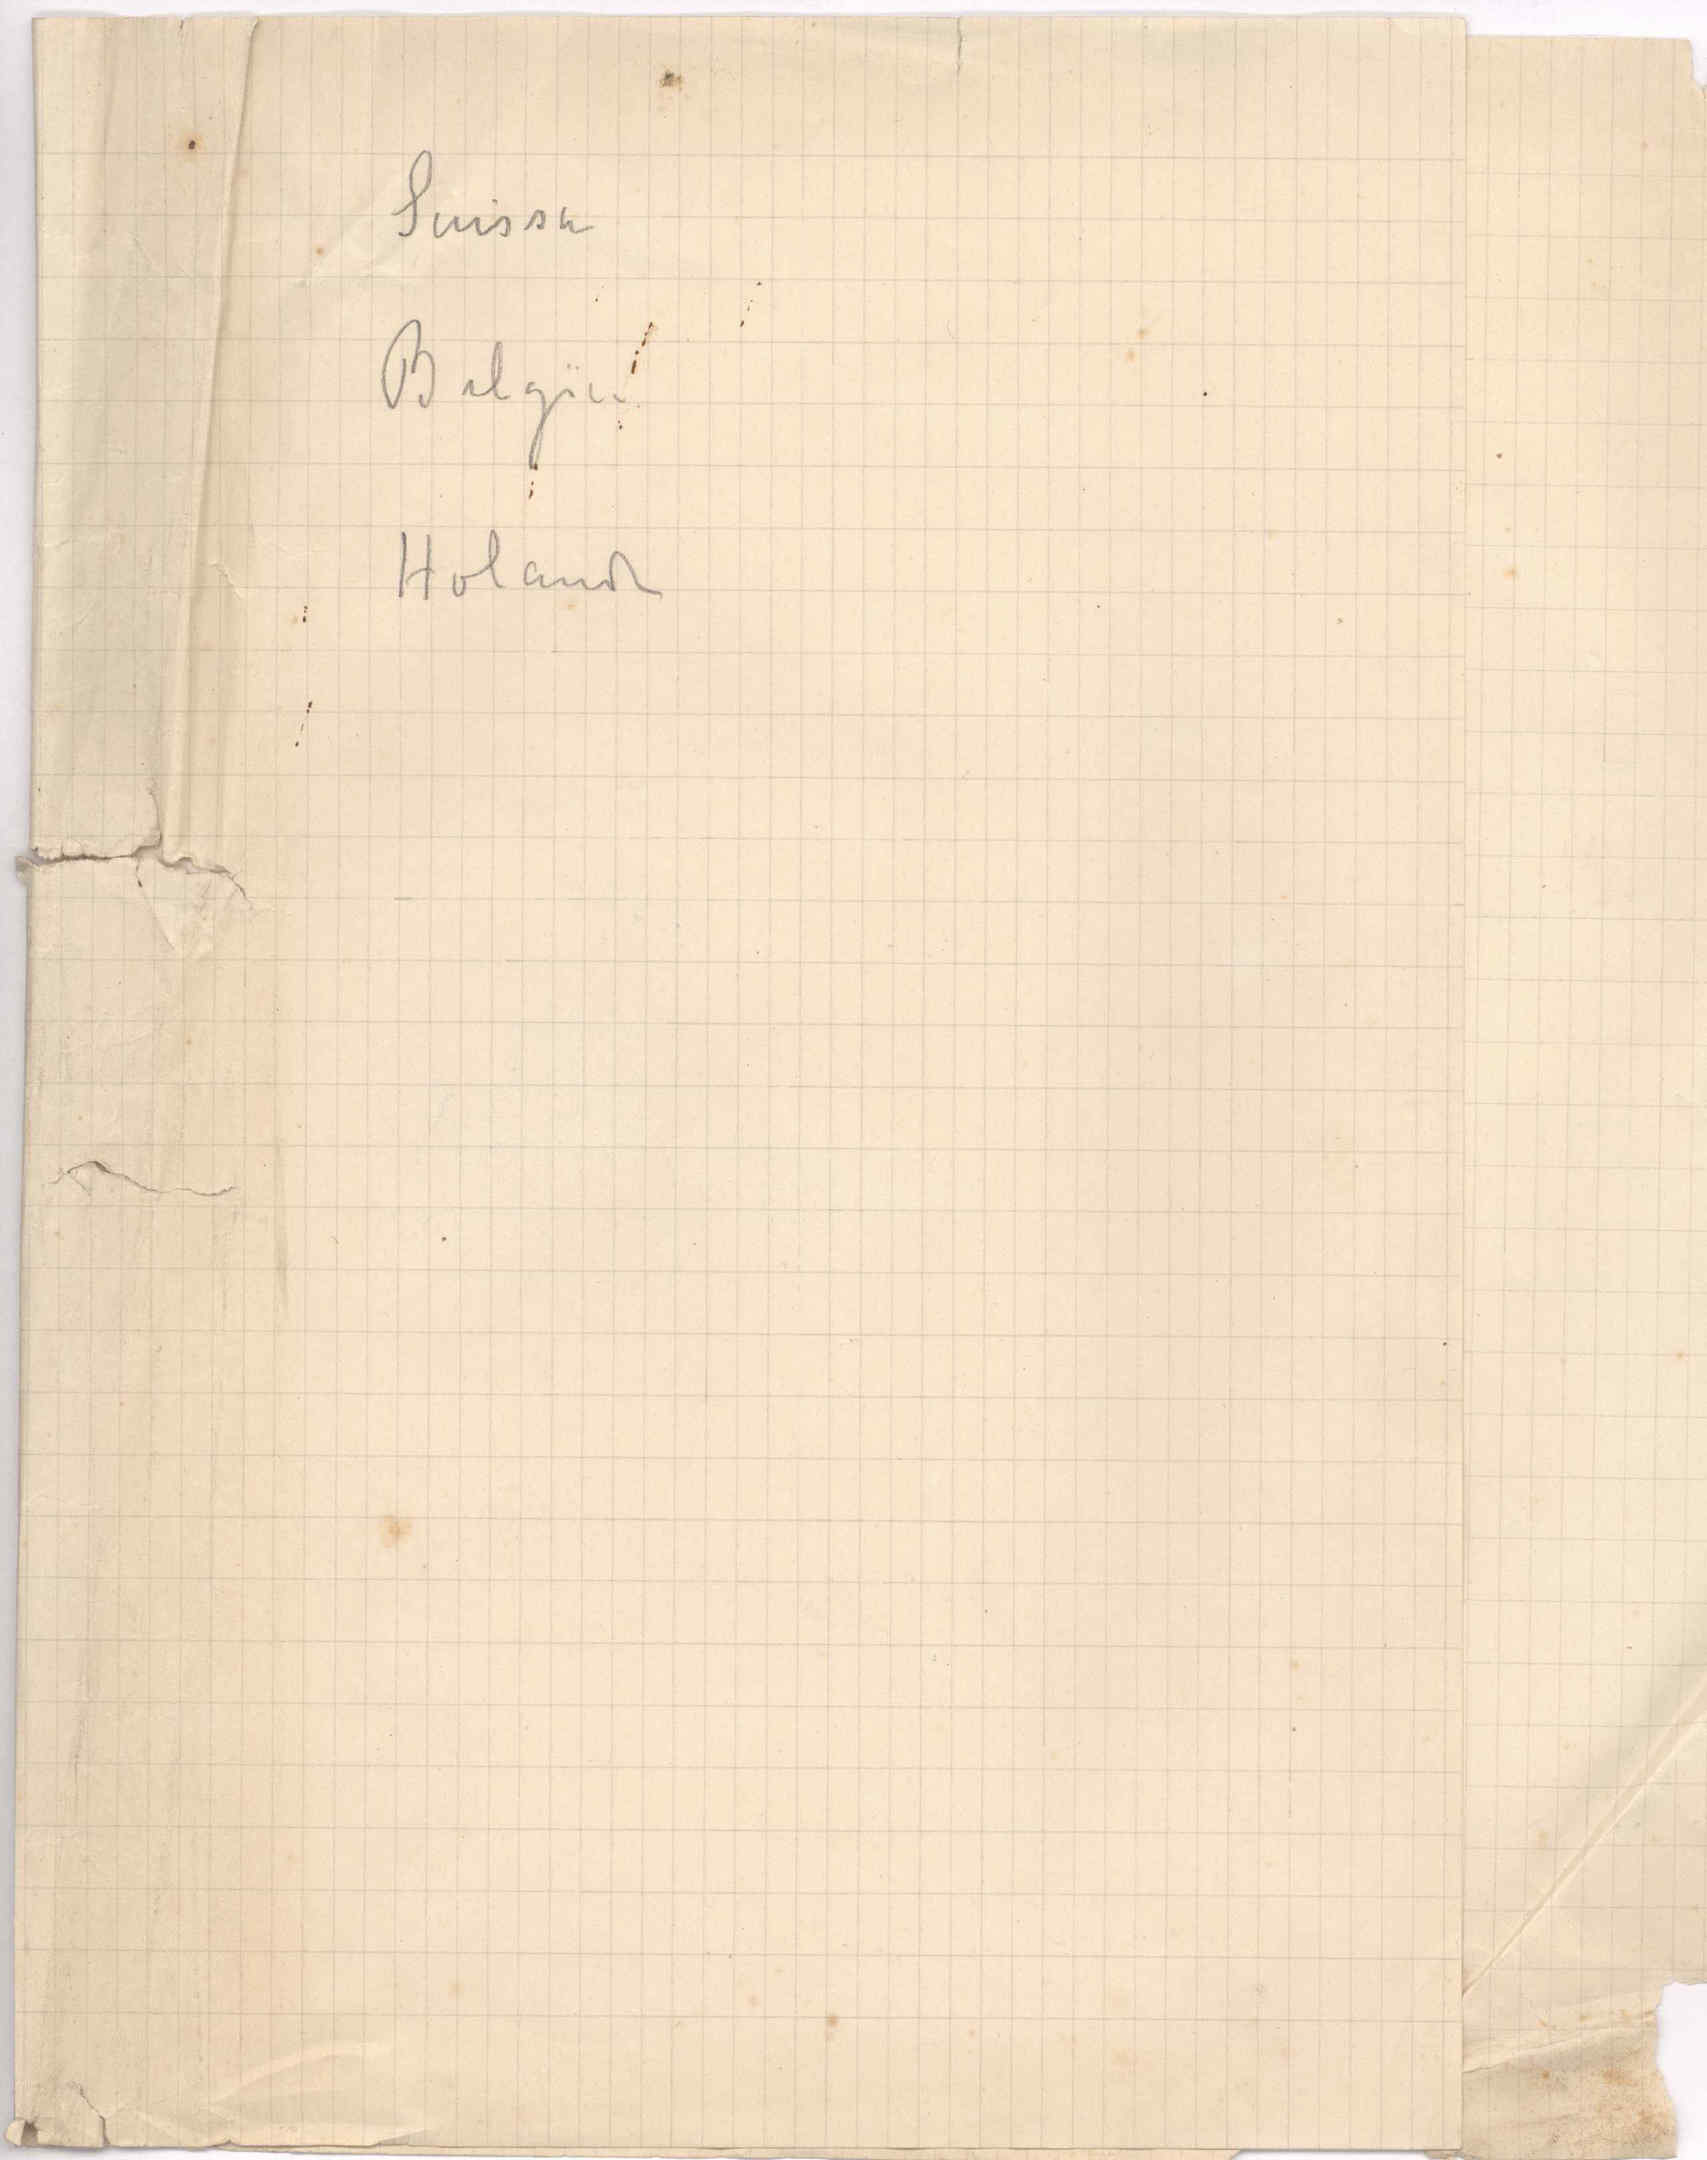 Suissa
Belgica
Holanda